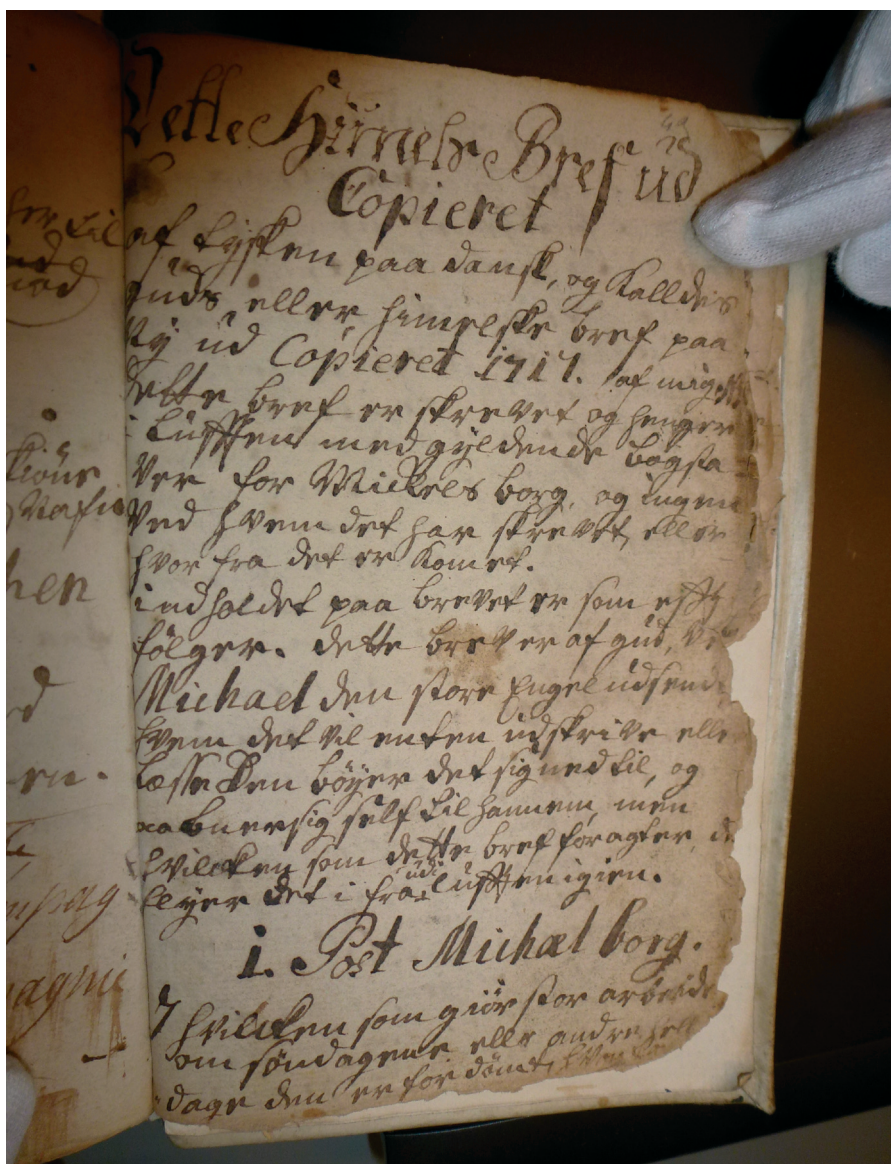 Dette Himels Bref ud
Copieret
af tysken paa dansk, og Kalldes
guds eller himelske bref paa
ny ud Copieret 1717. af mig
dette bref er skrevet og henger
i Lufften med gyldende bogsta
ver for Mickels borg, og ingen
ved hvem det har skrevet, eller
hvor fra det er komet.
indholdet paa brevet er som efft
fölger. dette brev er af gud, ved
Michael den store Engel udsend
hvem det vil enten udskrive elle
læsse den böyer det sig ned til, og
aabner sig self til hannem, men
hvilcken som dette bref foragter, de
flyer det i fra udi lufften igien.
1. Post Michæl borg.
hvilcken som giör stor arbeide
om söndagene ellr andre hell
dage den er for dömt,
her til
nod
Nafn
hen
d
en.